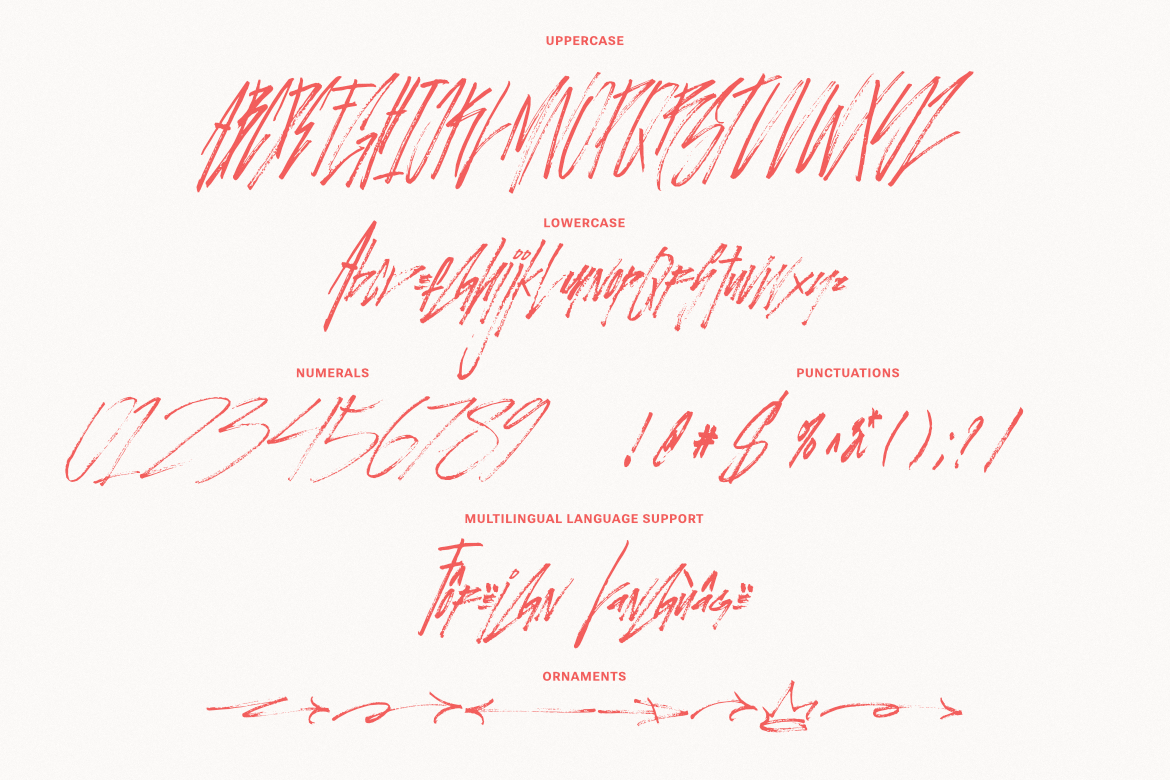 UPPERCASE
ABCDEFGHIJKLMNOPQRSTUVWXYZ
LOWERCASE
abcdefghijklmnopqrstuvwxyz
NUMERALS
0123456789
PUNCTUATIONS
!@#$%^&*();?/
MULTILINGUAL LANGUAGE SUPPORT
ORNAMENTS